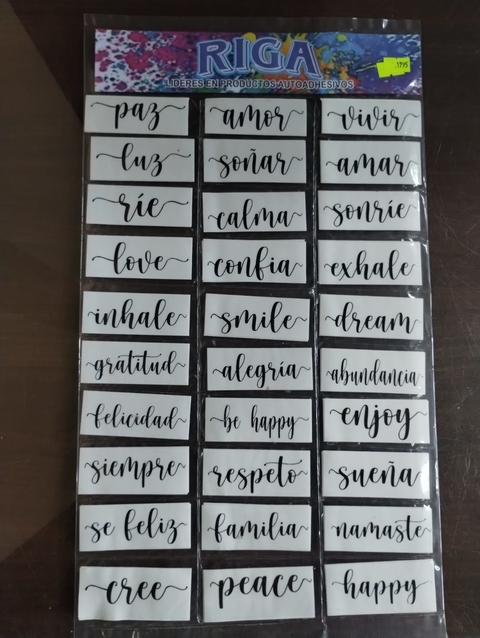 RIGA
LIDERES EN PRODUCTOS AUTOADHESIVOS
paz amor vivir
luz soñar amar
ríe calma sonríe
love confia exhale
inhale smile dream
gratitud alegría abundancia
felicidad be happy enjoy
siempre respeto sueña
se feliz familia namaste
cree peace happy